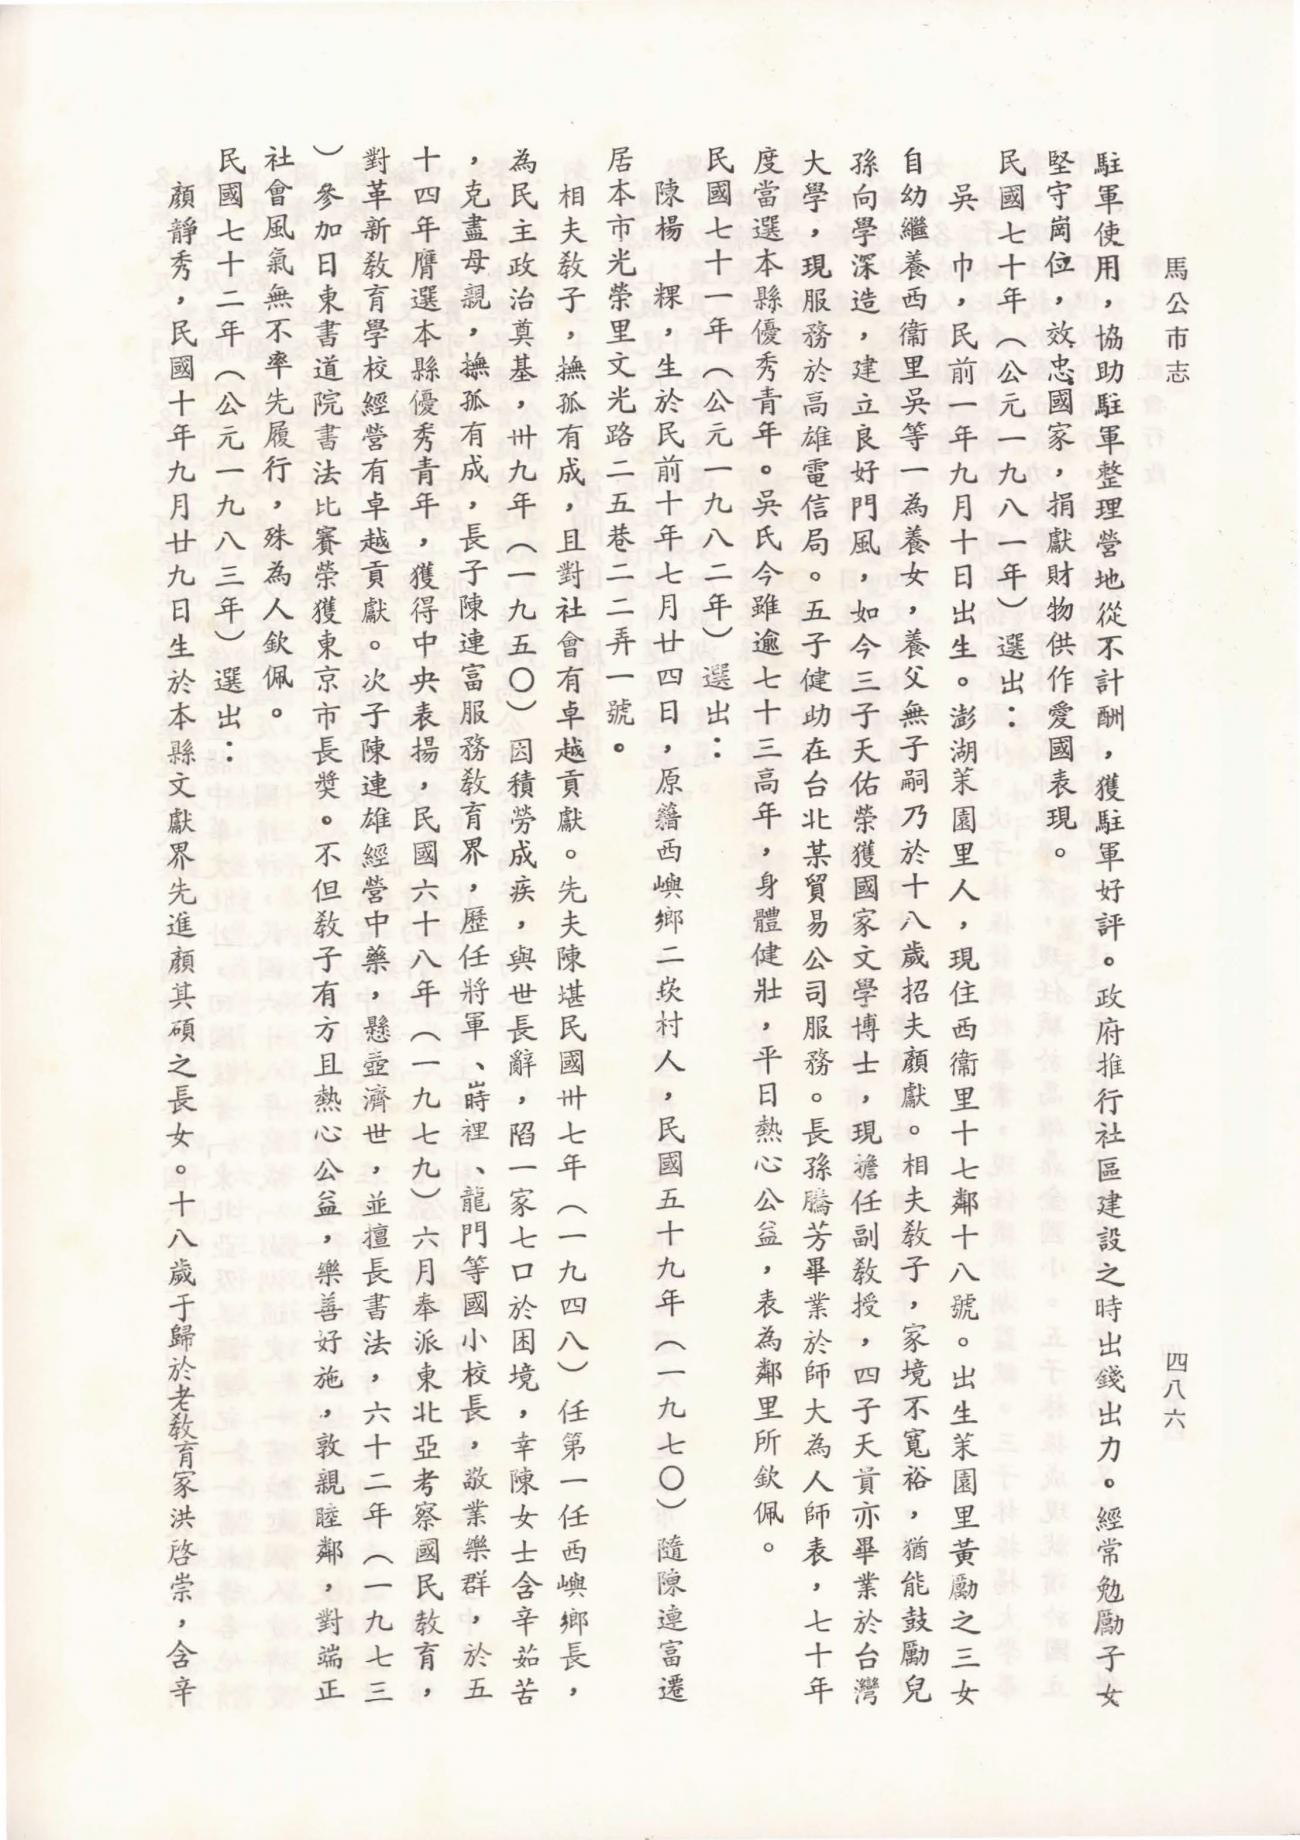 馬公市志
四八六
駐軍使用，協助駐軍整理營地從不計酬，獲駐軍好評。政府推行社區建設之時出錢出力。經常勉勵子女
堅守崗位，效忠國家，捐獻財物供作愛國表現。
民國七十年（公元一九八一年）選出：
吳　巾，民前一年九月十日出生。澎湖茉園里人，現住西衞里十七鄰十八號。出生茉園里黃勵之三女
自幼繼養西衞里吳等一為養女，養父無子嗣乃於十八歲招夫顏獻。相夫敎子，家境不寬裕，猶能鼓勵兒
孫向學深造，建立良好門風，如今三子天佑榮獲國家文學博士，現擔任副敎授，四子天貢亦畢業於台灣
大學，現服務於高雄電信局。五子健助在台北某貿易公司服務。長孫騰芳畢業於師大為人師表，七十年
度當選本縣優秀青年。吳氏今雖逾七十三高年，身體健壯，平日熱心公益，表為鄰里所欽佩。
民國七十一年（公元一九八二年）選出：
陳楊　粿，生於民前十年七月廿四日，原籍西嶼鄉二崁村人，民國五十九年（一九七〇）隨陳連富遷
居本市光榮里文光路二五巷二二弄一號。
相夫敎子，撫孤有成，且對社會有卓越貢獻。先夫陳堪民國卅七年（一九四八）任第一任西嶼鄉長，
為民主政治奠基，卅九年（一九五〇）因積勞成疾，與世長辭，陷一家七口於困境，幸陳女士含辛茹苦
，克盡母親，撫孤有成，長子陳連富服務敎育界，歷任將軍、嵵裡、龍門等國小校長，敬業樂群，於五
十四年膺選本縣優秀青年，獲得中央表揚，民國六十八年（一九七九）六月奉派東北亞考察國民敎育，
對革新敎育學校經營有卓越貢獻。次子陳連雄經營中藥，懸壺濟世，並擅長書法，六十二年（一九七三
）參加日東書道院書法比賽榮獲東京市長獎。不但敎子有方且熱心公益，樂善好施，敦親睦鄰，對端正
社會風氣無不率先履行，殊為人欽佩。
民國七十二年（公元一九八三年）選出：
顏靜秀，民國十年九月廿九日生於本縣文獻界先進顏其碩之長女。十八歲于歸於老敎育家洪啓崇，含辛